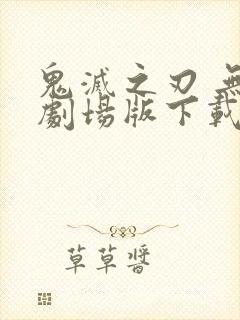 鬼滅之刃 無
劇場版下載
草草醬